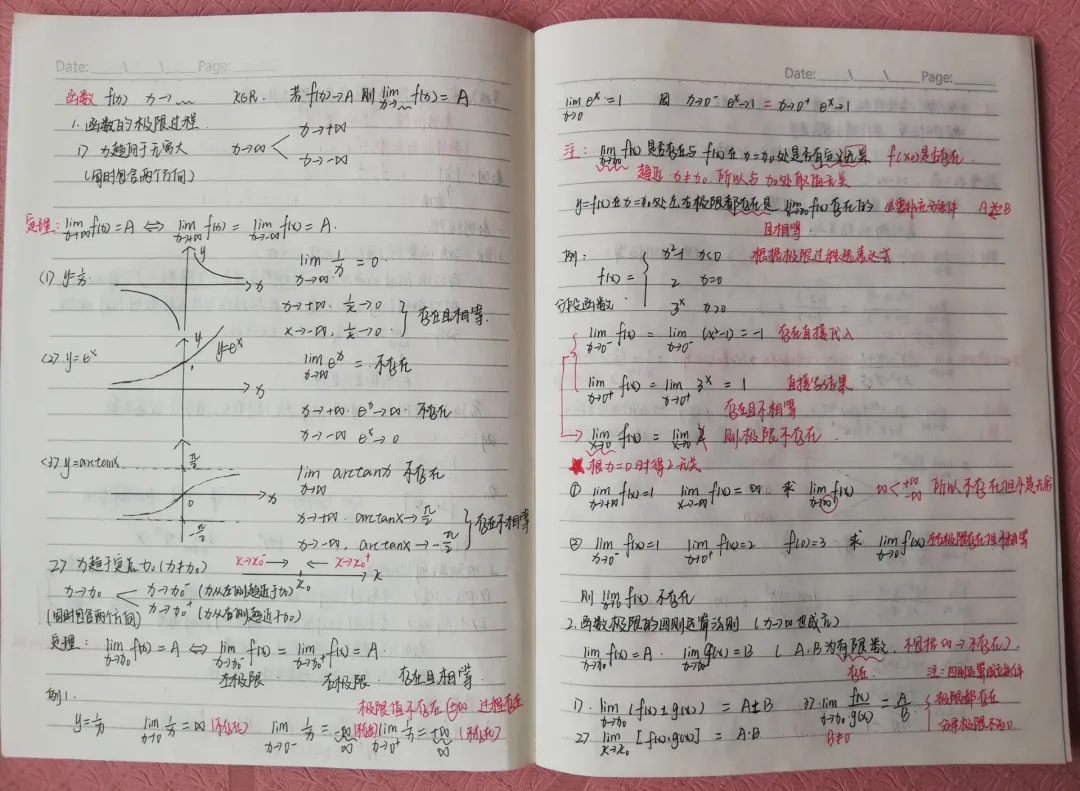 Date: \ \ Page:
函数 f(x) x→... x∈R. 若 f(x)→A 则 lim x→... f(x) = A
1. 函数的极限过程.
1) x趋向于无穷大 x→∞ < x→+∞ x→-∞
(同时包含两个方向)
定理: lim x→∞ f(x) = A ⇔ lim x→+∞ f(x) = lim x→-∞ f(x) = A.
(1) y=1/x y x
lim x→∞ 1/x = 0
x→+∞. 1/x→0
x→-∞, 1/x→0 } 存在且相等.
(2) y=e^x y y=e^x x
lim x→∞ e^x = 不存在
x→+∞. e^x→∞ 不存在
x→-∞ e^x→0
(3) y=arctanx π/2 0 x -π/2
lim x→∞ arctanx 不存在
x→+∞. arctanx→π/2
x→-∞, arctanx→-π/2 } 存在不相等
2) x趋于定点x₀ (x≠x₀) x→x₀⁻ x→x₀⁺ x₀ x
x→x₀ < x→x₀⁻ (x从左侧趋近于x₀)
(同时包含两个方向) x→x₀⁺ (x从右侧趋近于x₀)
定理: lim x→x₀ f(x) = A ⇔ lim x→x₀⁻ f(x) = lim x→x₀⁺ f(x) = A.
左极限 右极限 存在且相等.
例1. 极限值不存在
y=1/x lim x→0 1/x = ∞ (不存在) lim x→0⁻ 1/x = -∞ lim x→0⁺ 1/x = +∞ (不存在)
Date: \ \ Page:
lim x→0 e^x = 1 因 x→0⁻ e^x→1 = x→0⁺ e^x→1
注: lim x→x₀ f(x) 是否存在与 f(x) 在 x=x₀ 处是否有定义无关 f(x₀)是否存在.
趋近 x≠x₀. 所以与x₀处取值无关
y=f(x)在x=x₀处左右极限都存在是 lim x→x₀ f(x) 存在的 必要非充分条件
且相等.
例: f(x) = { x²-1 x<0 根据极限过程选表达式
2 x=0
分段函数 3^x x>0
lim x→0⁻ f(x) = lim x→0⁻ (x²-1) = -1 存在直接代入
lim x→0⁺ f(x) = lim x→0⁺ 3^x = 1 直接写结果
存在且不相等
lim x→0 f(x) = lim x→0 则极限不存在.
① lim x→+∞ f(x)=1 lim x→-∞ f(x)=∞ 求 lim x→∞ f(x) ∞ < +∞ -∞ 所以不存在但不是无穷
② lim x→0⁻ f(x)=1 lim x→0⁺ f(x)=2 f(0)=3 求 lim x→0 f(x) 左右极限存在但不相等
则 lim x→0 f(x) 不存在
2. 函数极限的四则运算法则 (x→∞也成立)
lim x→x₀ f(x) = A. lim x→x₀ g(x) = B (A.B为有限数. 不包括∞→不存在)
存在. 注: 四则运算成立条件
1). lim x→x₀ (f(x)±g(x)) = A±B 3). lim x→x₀ f(x)/g(x) = A/B { 极限都存在
2) lim x→x₀ [f(x)·g(x)] = A·B B≠0 分母极限不为0